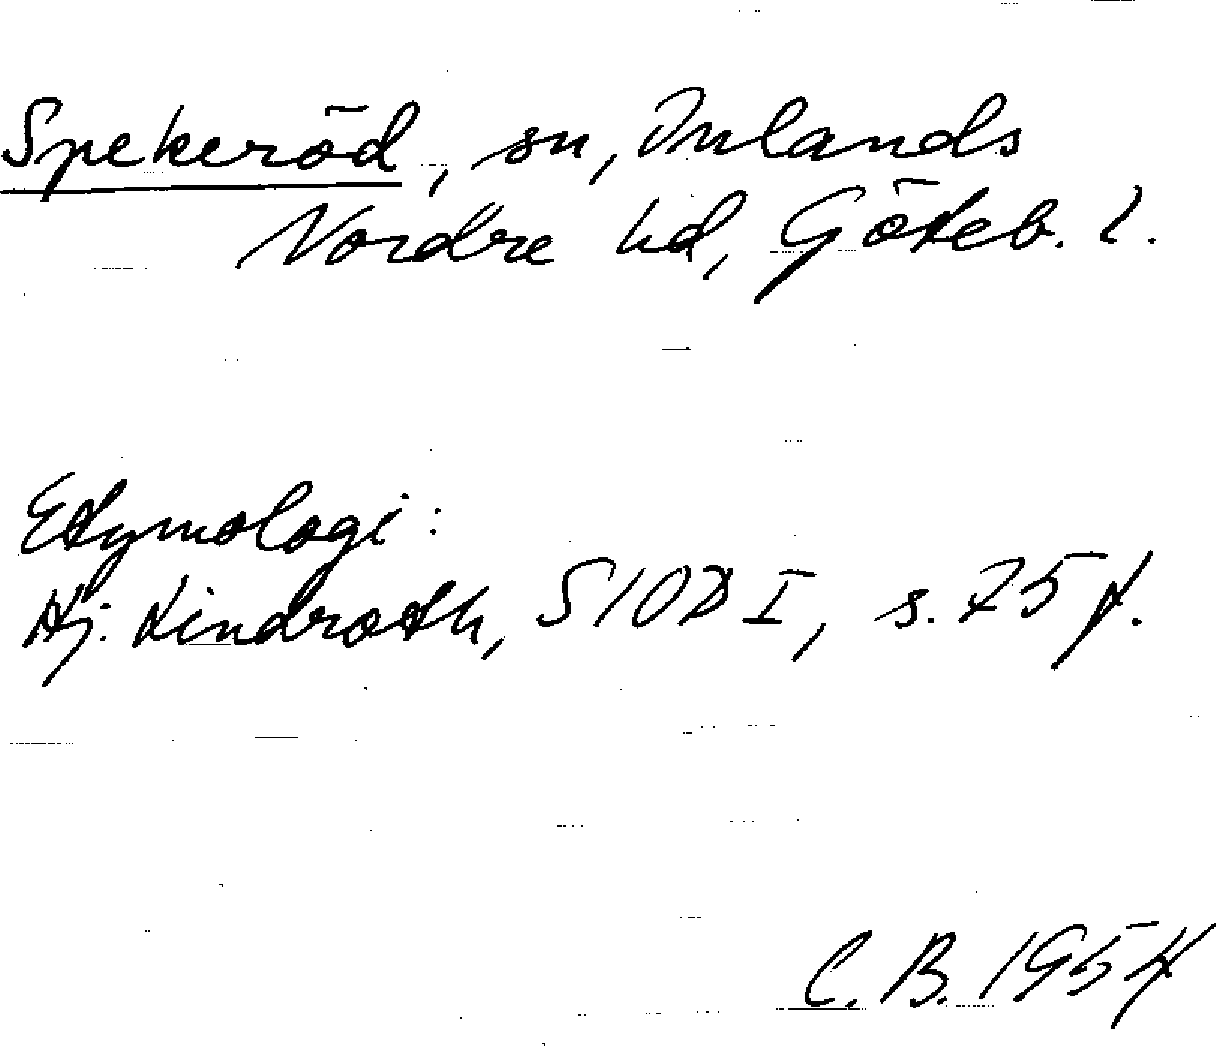 Spekeröd, sn, Inlands
Nordre hd, Göteb. l.
Etymologi:
Hj. Lindroth, SIOD I, s. 75 f.
C. B. 1954